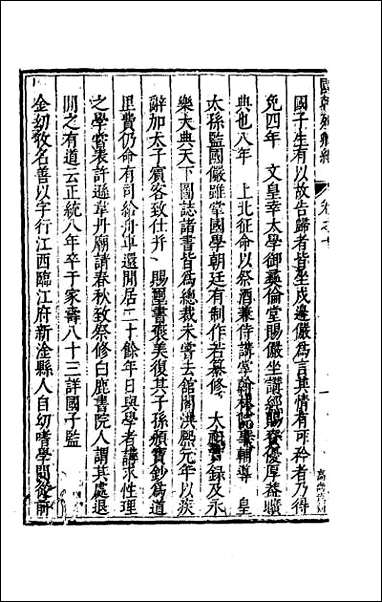 國子生有以故告歸者皆坐戍邊儼爲言其情有可矜者乃得
免四年　文皇幸太學御彝倫堂賜儼坐講經賜賚優厚蓋曠
典也八年　上北征命以祭酒兼侍講掌翰林院事輔導　皇
太孫監國儼雖掌國學朝廷有制作若纂修　太祖實錄及永
樂大典天下圖誌諸書皆爲總裁未嘗去館閣洪熙元年以疾
辭加太子賓客致仕并　賜璽書褒美復其子孫頒寶鈔爲道
里費仍命有司給舟車還閒居二十餘年日與學者講求性理
之學嘗表許遜阜丹廟請春秋致祭修白鹿書院人謂其處退
閒之有道云正統八年卒于家壽八十三詳國子監
金幼孜名善以字行江西臨江府新淦縣人自幼嗜學聞從前